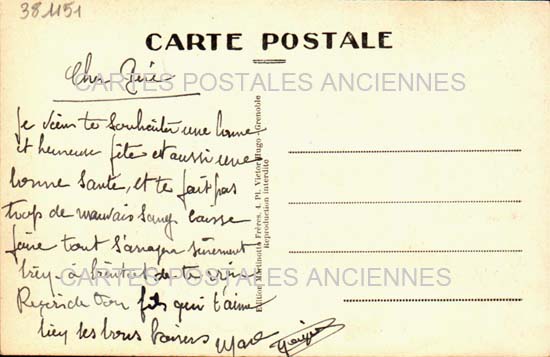 381151
CARTE POSTALE
Cher
CARTES POSTALES ANCIENNES
Je viens te souhaiter une bonne
et heureuse fête et aussi une
bonne santé, et te fait pas
trop de mauvais sang laisse
faire tout s'arrangera sûrement
bien, à bientôt de te voir
Reçois de ton fils qui t'aime
bien les bons baisers
Edition Martinotto Frères, 4, Pl. Victor Hugo - Grenoble
Reproduction interdite
CARTES POSTALES ANCIENNES